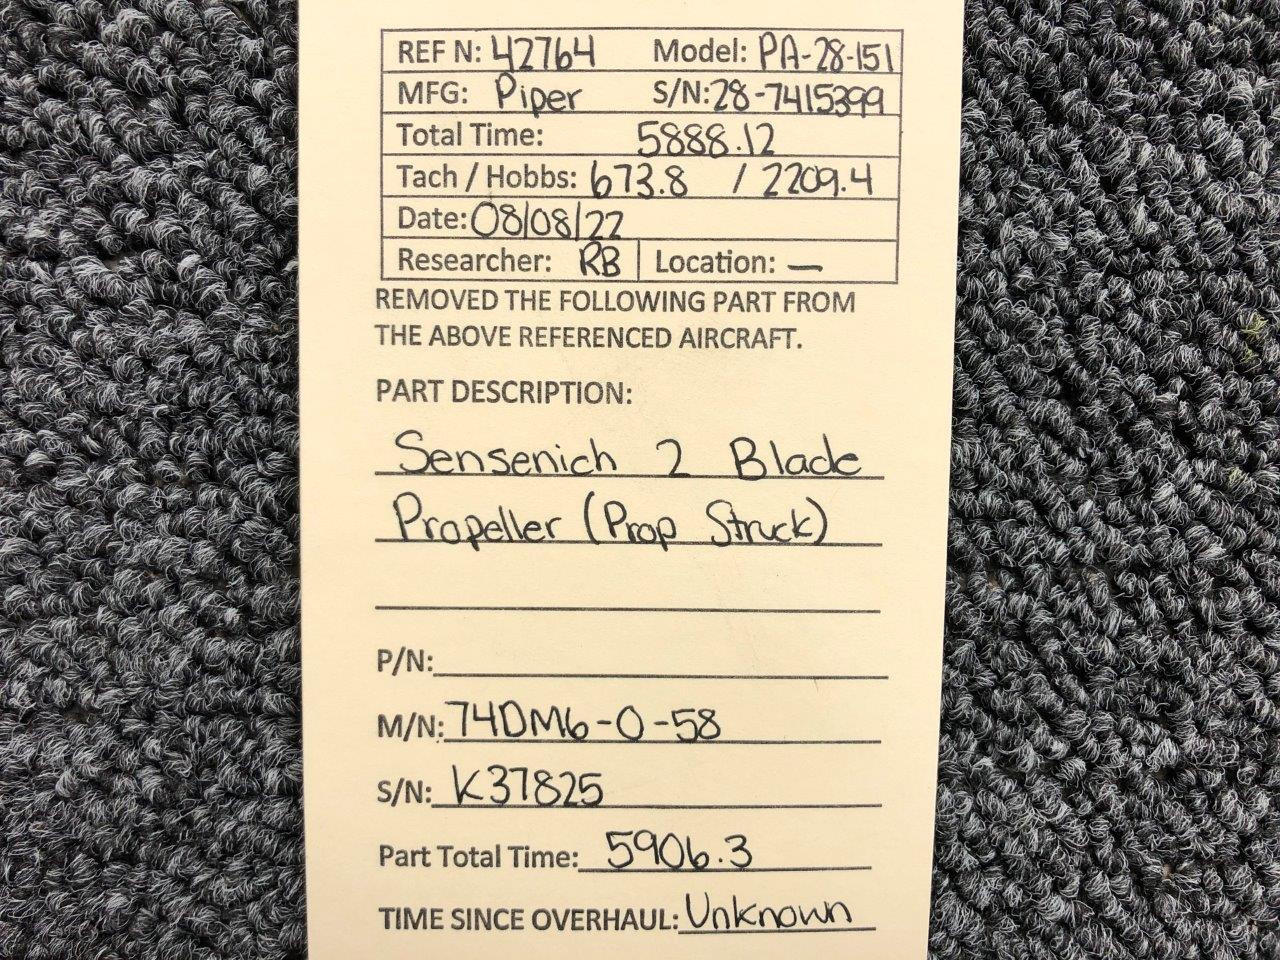 REF N: 42764 Model: PA-28-151
MFG: Piper S/N: 28-7415399
Total Time: 5888.12
Tach / Hobbs: 673.8 / 2209.4
Date: 08/08/22
Researcher: RB Location: —
REMOVED THE FOLLOWING PART FROM
THE ABOVE REFERENCED AIRCRAFT.
PART DESCRIPTION:
Sensenich 2 Blade
Propeller (Prop Struck)
P/N:
M/N: 74DM6-0-58
S/N: K37825
Part Total Time: 5906.3
TIME SINCE OVERHAUL: Unknown